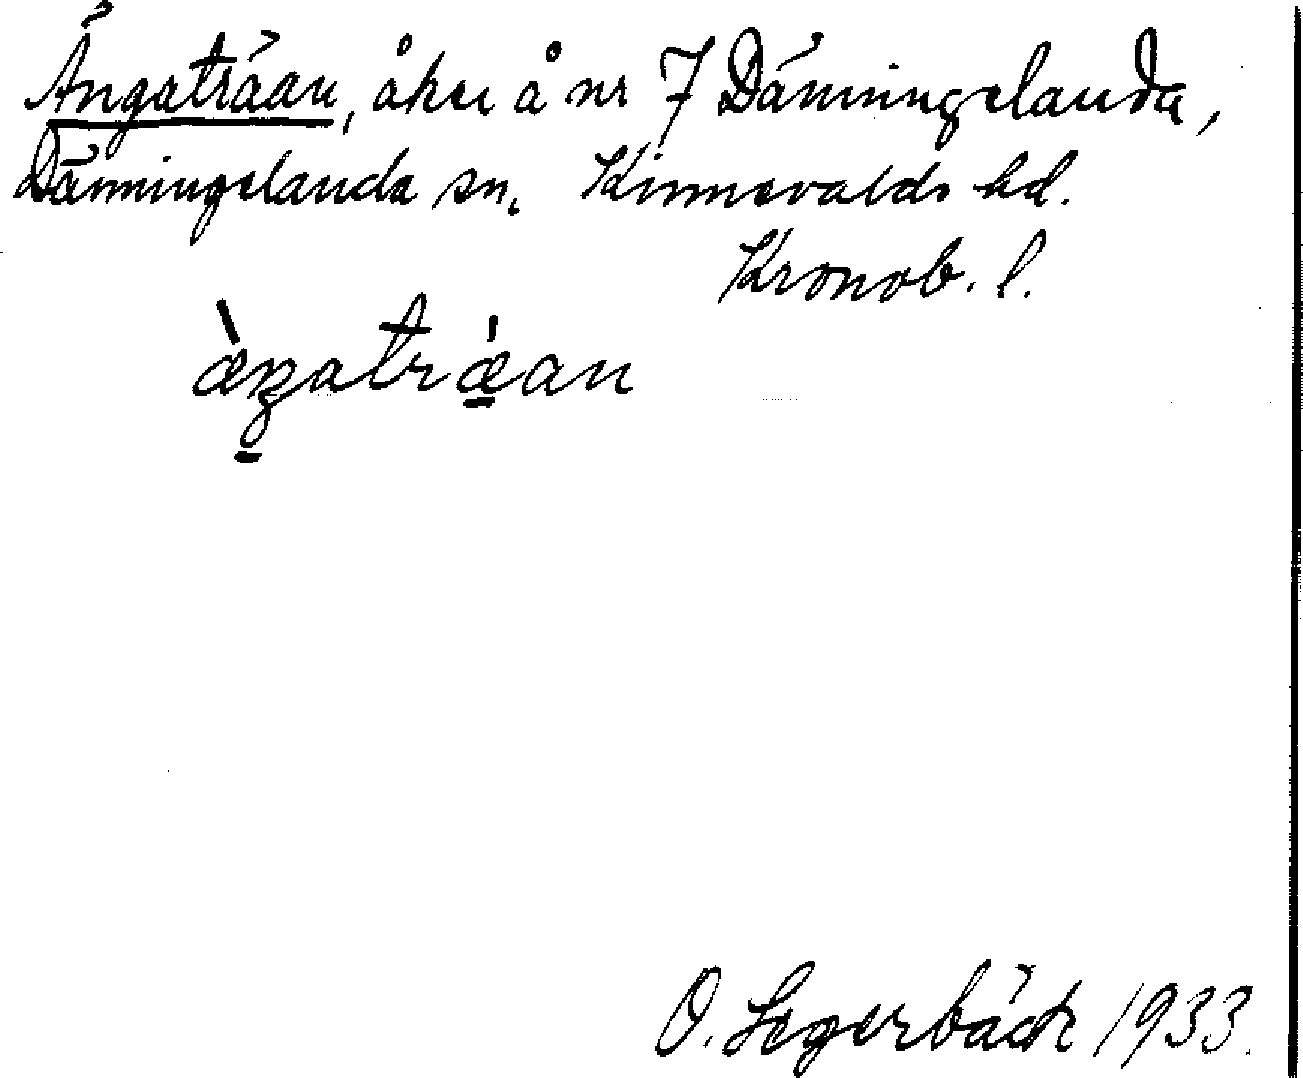 Ängaträan, åker å nr 7 Dänningelanda,
Dänningelanda sn. Kinnevalds hd.
Kronob. l.
O. Segerbäck 1933.